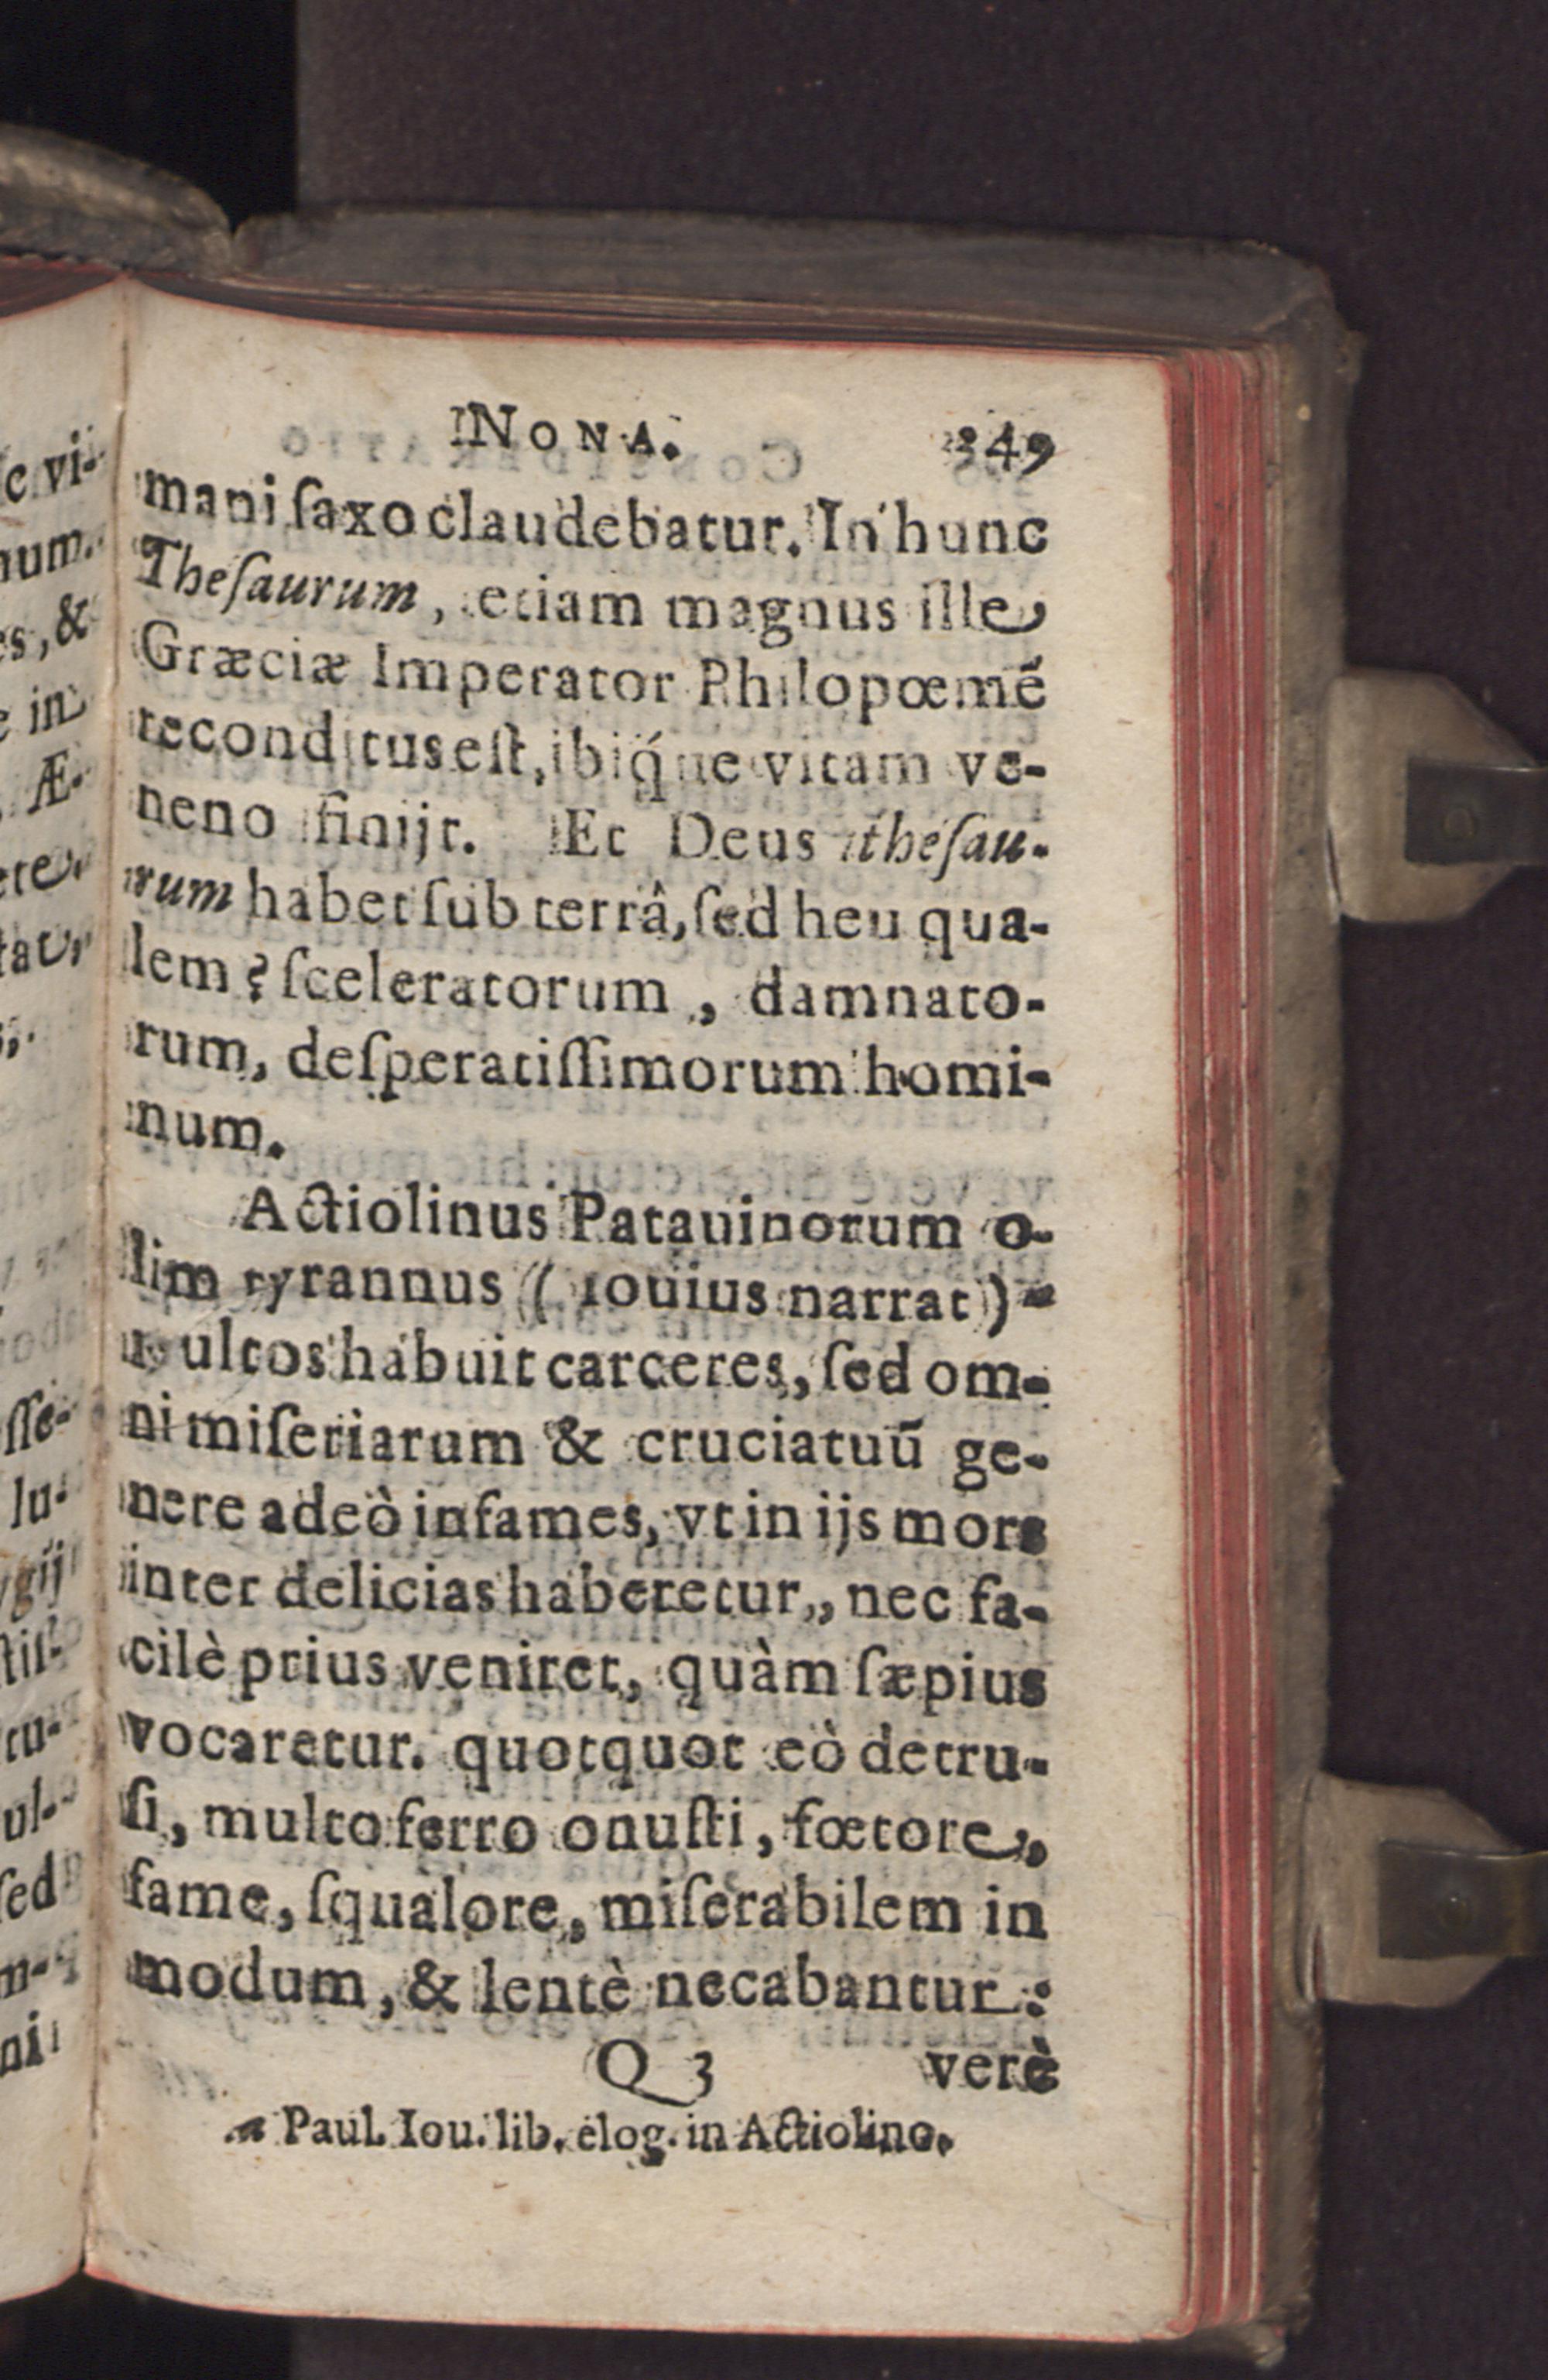 NONA. 249
mani ſaxo claudebatur. In hunc
Theſaurum, etiam magnus ille
Græciæ Imperator Philopœmē
reconditus eſt, ibiq́ue vitam ve-
neno finijt. Et Deus theſau-
rum habet ſub terrâ, ſed heu qua-
lem? ſceleratorum, damnato-
rum, deſperatiſſimorum homi-
num.
Actiolinus Patauinorum o-
lim tyrannus (Iouius narrat) a
multos habuit carceres, ſed om-
ni miſeriarum & cruciatuū ge-
nere adeò infames, vt in ijs mors
inter delicias haberetur, nec fa-
cilè prius veniret, quàm ſæpius
vocaretur. quotquot eò detru-
ſi, multo ferro onuſti, fœtore,
fame, ſqualore, miſerabilem in
modum, & lentè necabantur:
Q 3 verè
a Paul. Iou. lib. elog. in Actiolino.